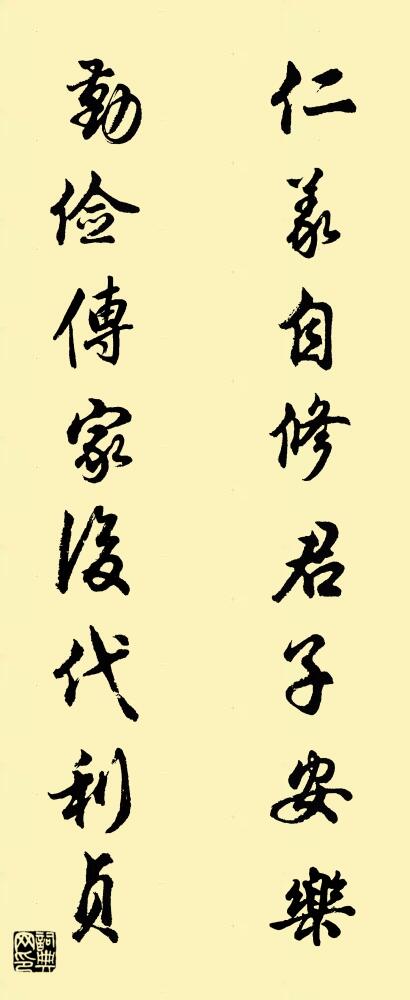 仁義自修君子安樂
勤俭傳家後代利貞
詞典网印